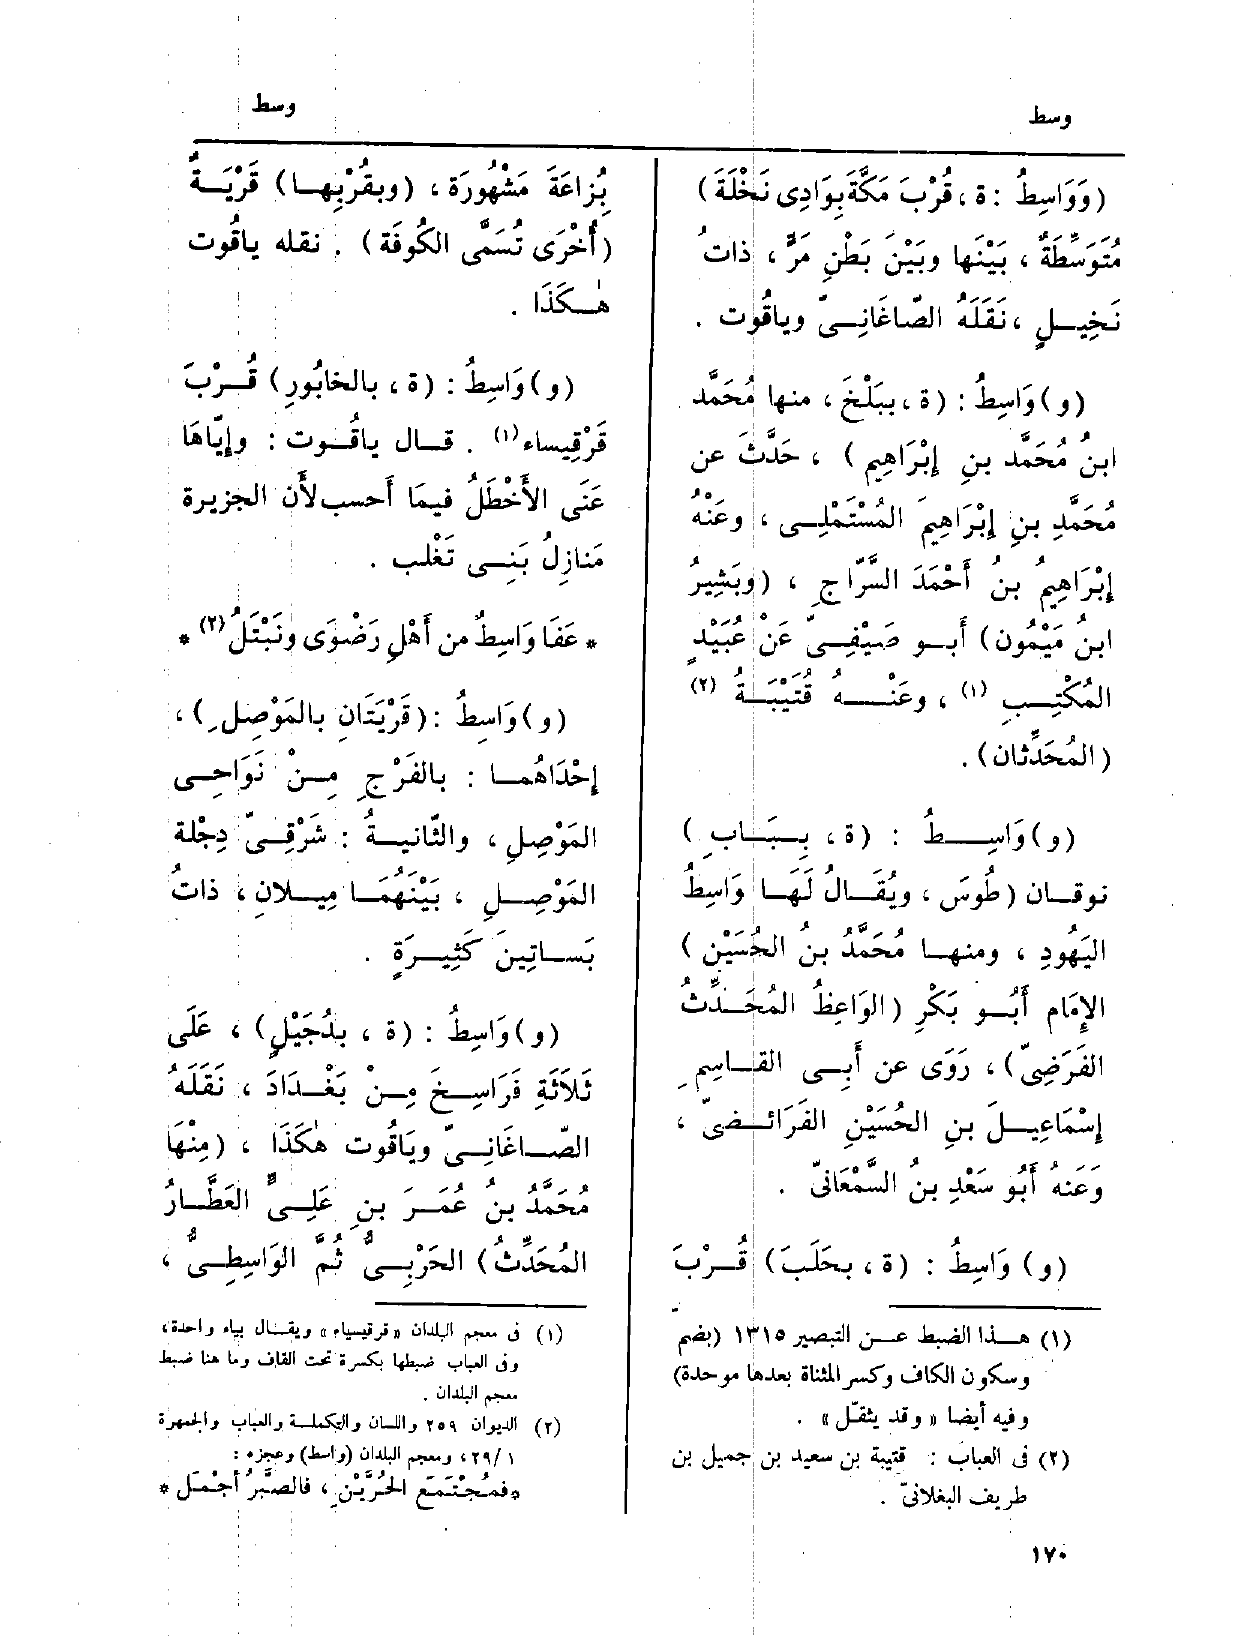 وسط
وسط
(وَوَاسِطُ : ة ، قُرْبَ مَكَّةَ بِوَادِى نَخْلَةَ)
مُتَوَسِّطَةٌ ، بَيْنَها وبَيْنَ بَطْنِ مَرٍّ ، ذاتُ
نَخِيــلٍ ، نَقَلَهُ الصّاغَانِــىّ وياقُوت .
(و) وَاسِطُ : (ة ، بِبَلْخَ ، منها مُحَمَّد
ابنُ مُحَمَّد بنِ إِبْرَاهِيم) ، حَدَّثَ عن
مُحَمَّدِ بنِ إِبْرَاهِيمَ المُسْتَمْلِــى ، وعَنْهُ
إِبْرَاهِيمُ بنُ أَحْمَدَ السَّرّاجِ ، (وبَشِيرُ
ابنُ مَيْمُون) أَبــو صَيْفِــىّ عَنْ عُبَيْدٍ
المُكْتِــبِ (١) ، وعَنْــهُ قُتَيْبَــةُ (٢)
(المُحَدِّثان) .
(و) وَاسِــطُ : (ة ، بِــبَــابِ)
نوقــان (طُوسَ ، ويُقَــالُ لَهَــا وَاسِطُ
اليَهُودِ ، ومنهــا مُحَمَّدُ بنُ الحُسَيْنِ)
الإِمَام أَبُــو بَكْرٍ (الوَاعِظُ المُحَــدِّثُ
الفَرَضِىّ) ، رَوَى عن أَبِــى القــاسِمِ
إِسْمَاعِيــلَ بنِ الحُسَيْنِ الفَرَائــضىّ ،
وَعَنهُ أَبُو سَعْدِ بنُ السَّمْعَانىّ .
(و) وَاسِطُ : (ة ، بحَلَبَ) قُــرْبَ
(١) هــذا الضبط عــن التبصير ١٣١٥ (بضم
وسكون الكاف وكسر المثناة بعدها موحدة)
وفيه أيضا « وقد يثقّل » .
(٢) فى العباب : قتيبة بن سعيد بن جميل بن
طريف البغلانىّ .
بُزاعَةَ مَشْهُورَة ، (وبقُرْبِهــا) قَرْيَــةٌ
(أُخْرَى تُسَمَّى الكُوفَة) . نقله ياقُوت
هٰــكَذَا .
(و) وَاسِطُ : (ة ، بالخابُورِ) قُــرْبَ
قَرْقِيساء (١) . قــال ياقُــوت : وإِيّاهَا
عَنَى الأَخْطَلُ فيمَا أَحسب لأَن الجزيرة
مَنازِلُ بَنِــى تَغْلب .
* عَفَا وَاسِطٌ من أَهْلِ رَضْوَى ونَبْتَلُ (٢) *
(و) وَاسِطُ : (قَرْيَتَان بالمَوْصِلِ) ،
إِحْدَاهُمــا : بالفَرْجِ مِــنْ نَوَاحِــى
المَوْصِلِ ، والثّانيــةُ : شَرْقِــىّ دِجْلة
المَوْصِــلِ ، بَيْنَهُمَــا مِيــلانِ ، ذاتُ
بَســاتِينَ كَثِيــرَةٍ .
(و) وَاسِطُ : (ة ، بدُجَيْلٍ) ، عَلَى
ثَلَاثَةِ فَرَاسِــخَ مِــنْ بَغْــدَادَ ، نَقَلَهُ
الصّــاغَانِــىّ ويَاقُوت هٰكَذَا ، (مِنْهَا
مُحَمَّدُ بنُ عُمَــرَ بنِ عَلِــىٍّ العَطَّــارُ
المُحَدِّثُ) الحَرْبِــىُّ ثُمَّ الوَاسِطِــىُّ ،
(١) فى معجم البلدان « قرقيسياء » ويقــال بياء واحدة ،
وفى العباب ضبطها بكسرة تحت القاف وما هنا ضبط
معجم البلدان .
(٢) الديوان ٢٥٩ واللسان والتكملــة والعباب والجمهرة
١ /٢٩ ، ومعجم البلدان (واسط) وعجزه :
* فمُجْتَمَع الحُرَّيْنِ ، فالصَّبْرُ أَجْمَل *
١٧٠